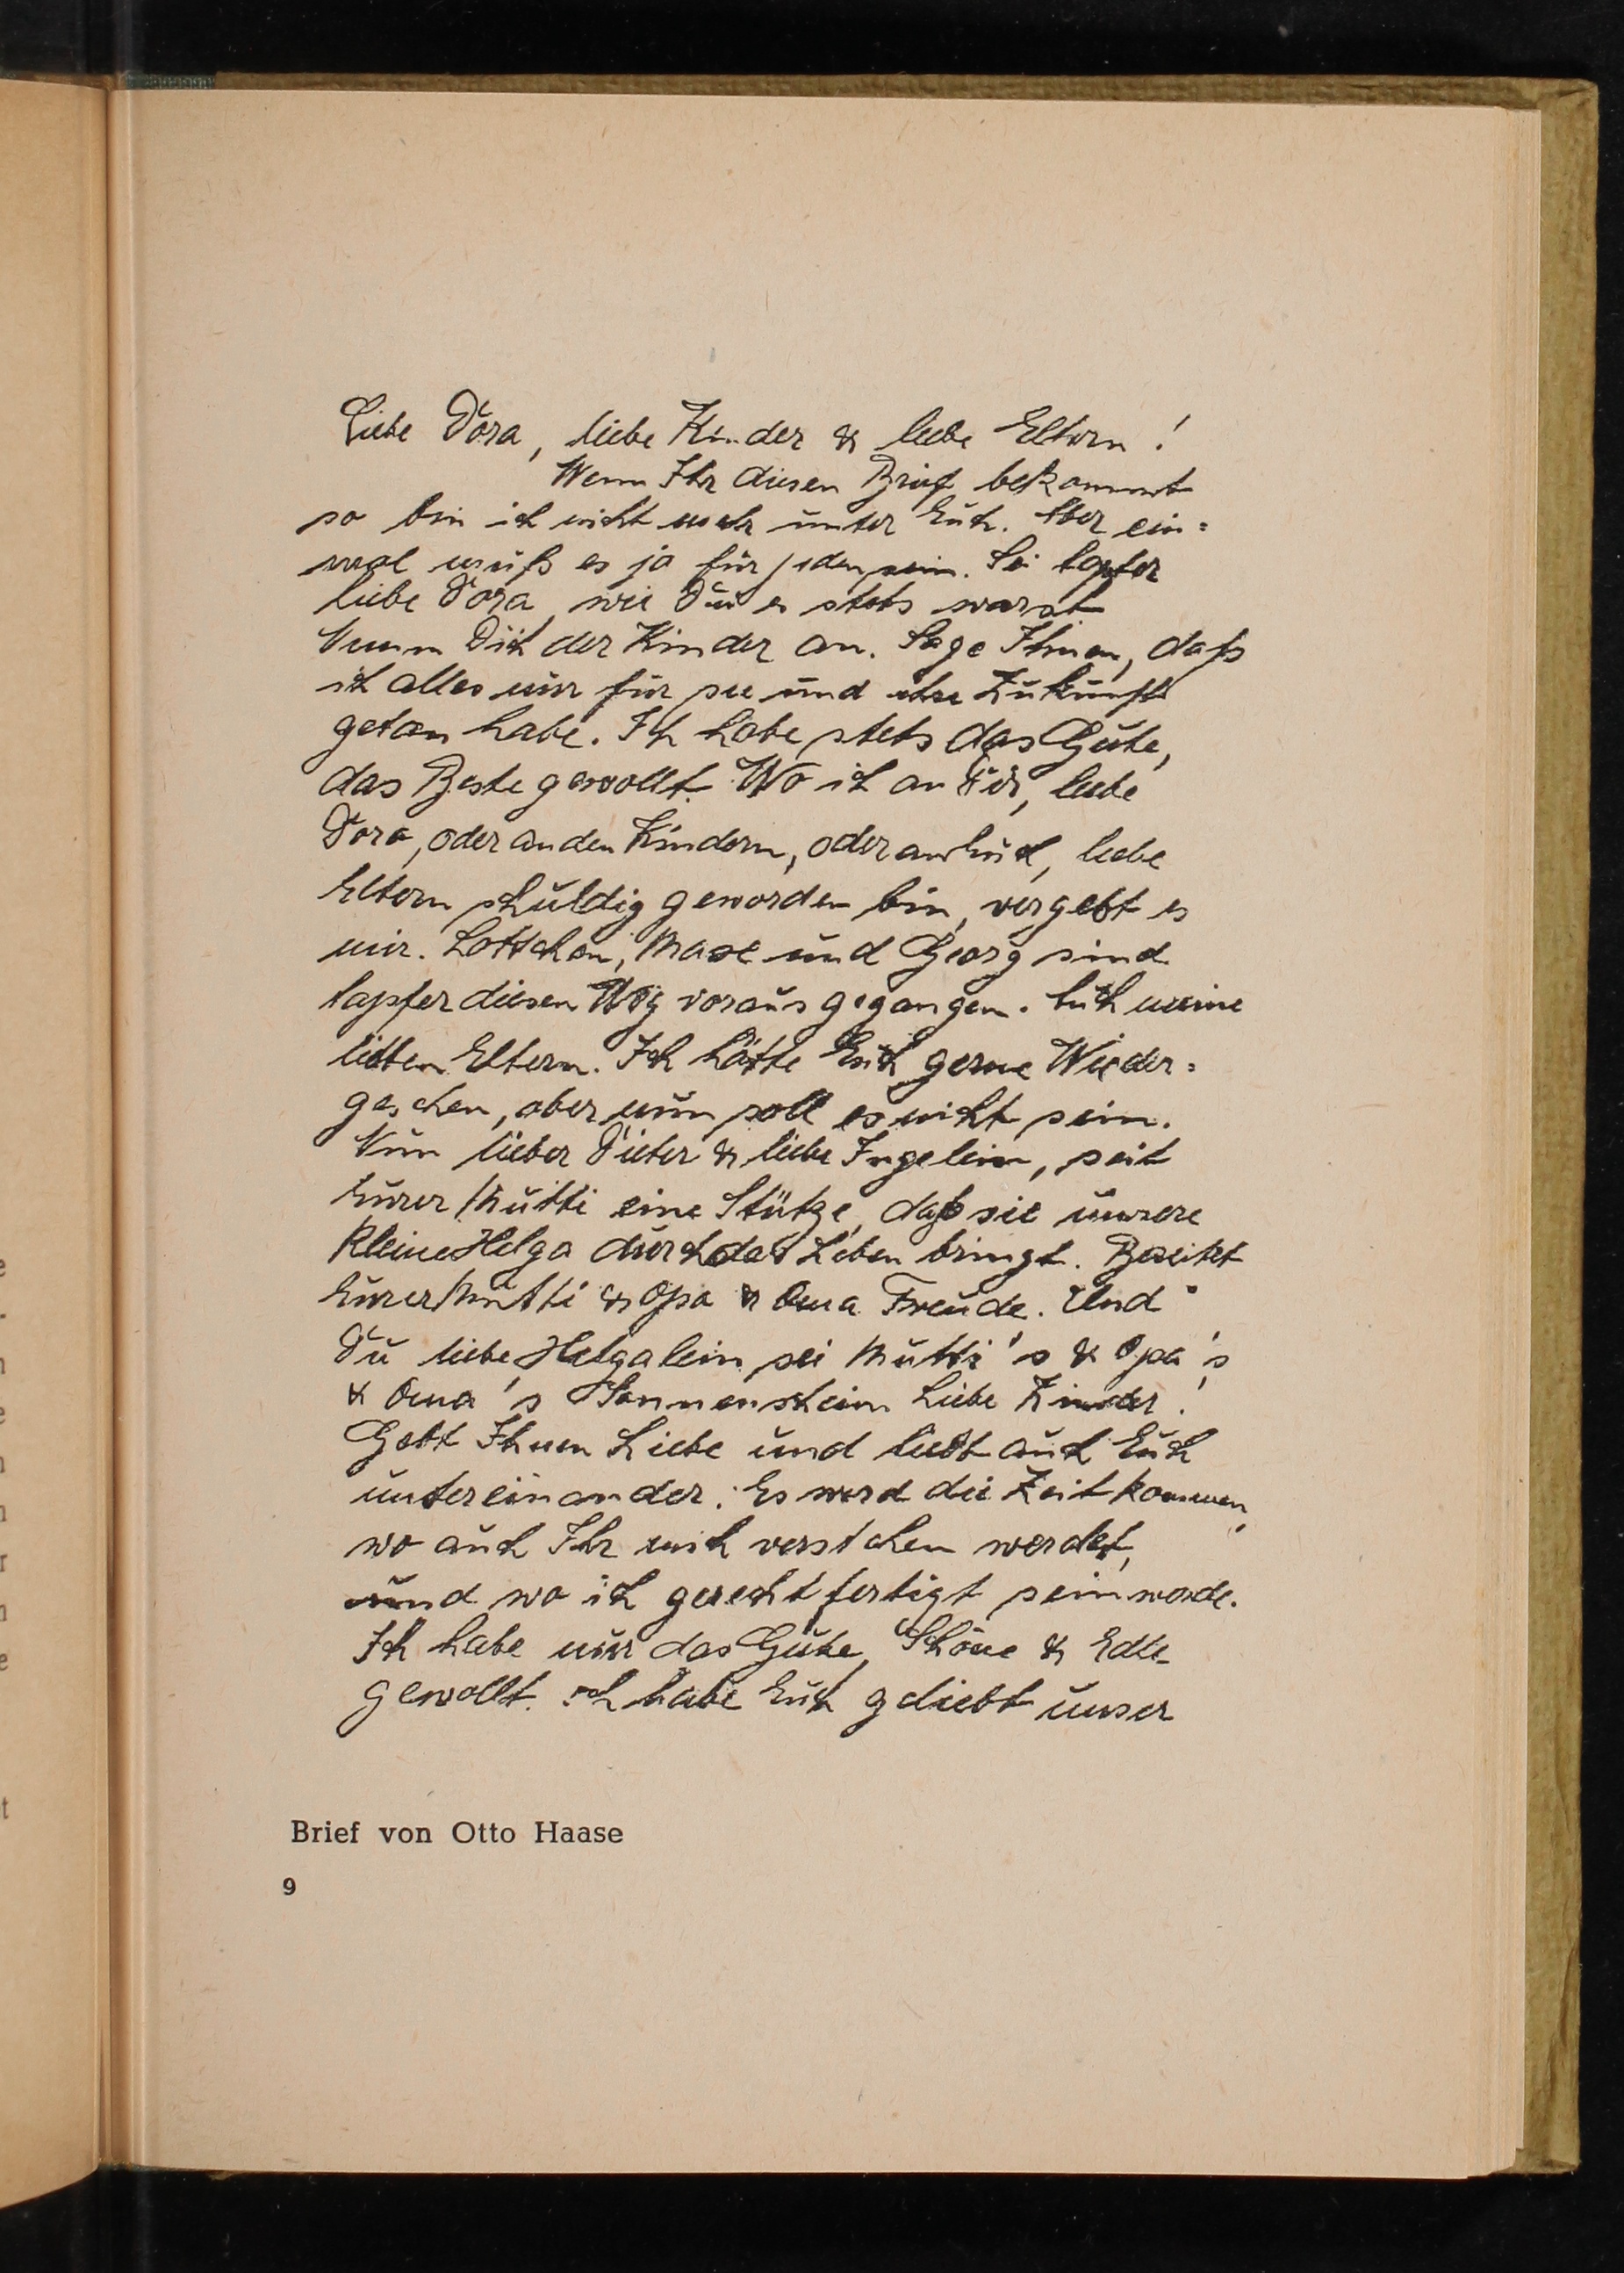 Liebe Dora, liebe Kinder & liebe Eltern!
Wenn Ihr diesen Brief bekommt
so bin ich nicht mehr unter Euch. Aber ein=
mal muß es ja für jeden sein. Sei tapfer
liebe Dora, wie Du es stets warst
Nimm Dich der Kinder an. Sage Ihnen, daß
ich alles nur für sie und ihre Zukunft
getan habe. Ich habe stets das Gute,
das Beste gewollt. Wo ich an Dir, liebe
Dora, oder an den Kindern, oder an Euch, liebe
Eltern schuldig geworden bin, vergebt es
mir. Lottchen, Maxe und Georg sind
tapfer diesen Weg voraus gegangen. Auch meine
lieben Eltern. Ich hätte Euch gerne Wieder=
gesehen, aber nun soll es nicht sein.
Nun lieber Dieter & liebe Ingelein, seit
Eurer Mutti eine Stütze, daß sie unsere
kleine Helga durch das Leben bringt. Bereitet
Eurer Mutti & Opa & Oma Freude. Und
Du liebe Helgalein sei Mutti's & Opa's
& Oma's Sonnenschein Liebe Kinder!
Gebt Ihnen Liebe und liebt auch Euch
untereinander. Es wird die Zeit kommen,
wo auch Ihr mich verstehen werdet,
und wo ich gerechtfertigt sein werde.
Ich habe nur das Gute, Schöne & Edle
gewollt. Ich habe Euch geliebt unser
Brief von Otto Haase
9